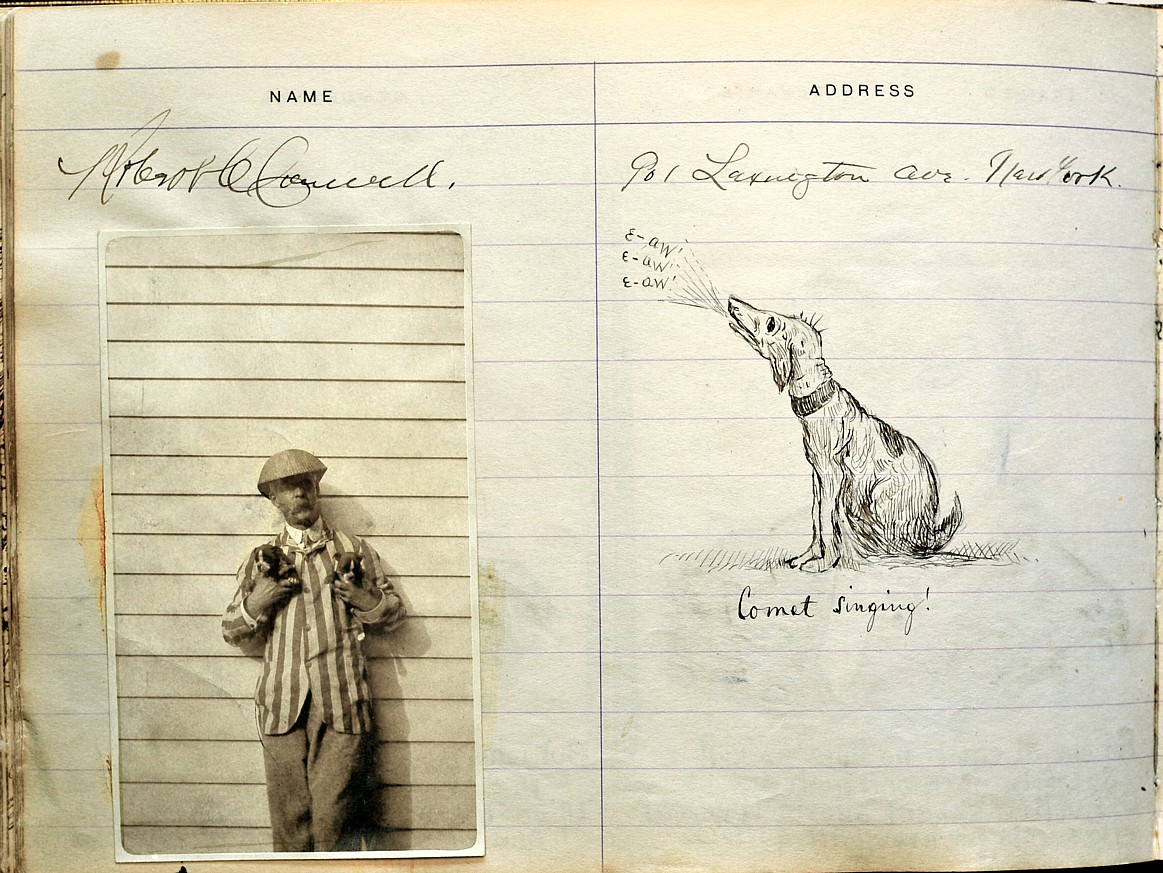 NAME
ADDRESS
901 Lexington Ave. New York.
E-AW!
E-AW!
E-AW!
Comet singing!